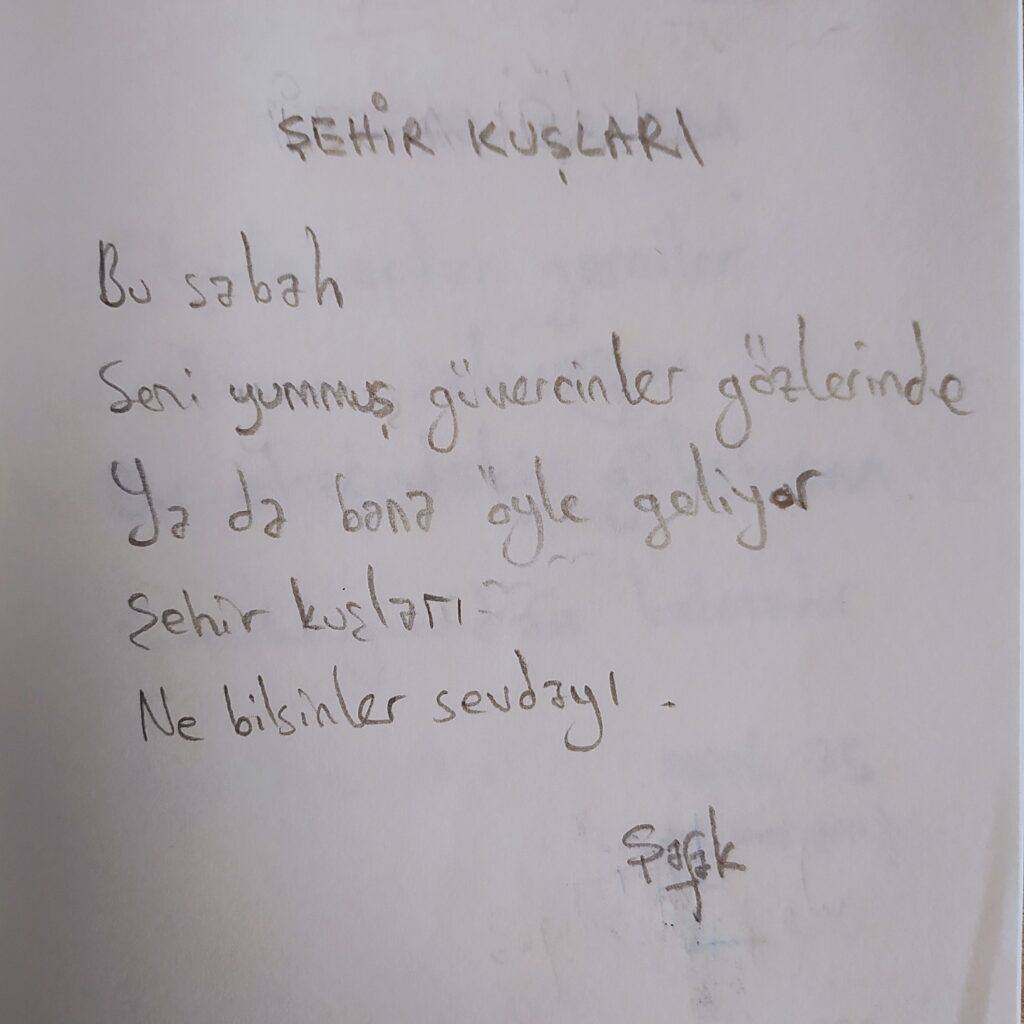 ŞEHİR KUŞLARI
Bu sabah
Seni yummuş güvercinler gözlerinde
Ya da bana öyle geliyor
Şehir kuşları
Ne bilsinler sevdayı.
Şafak